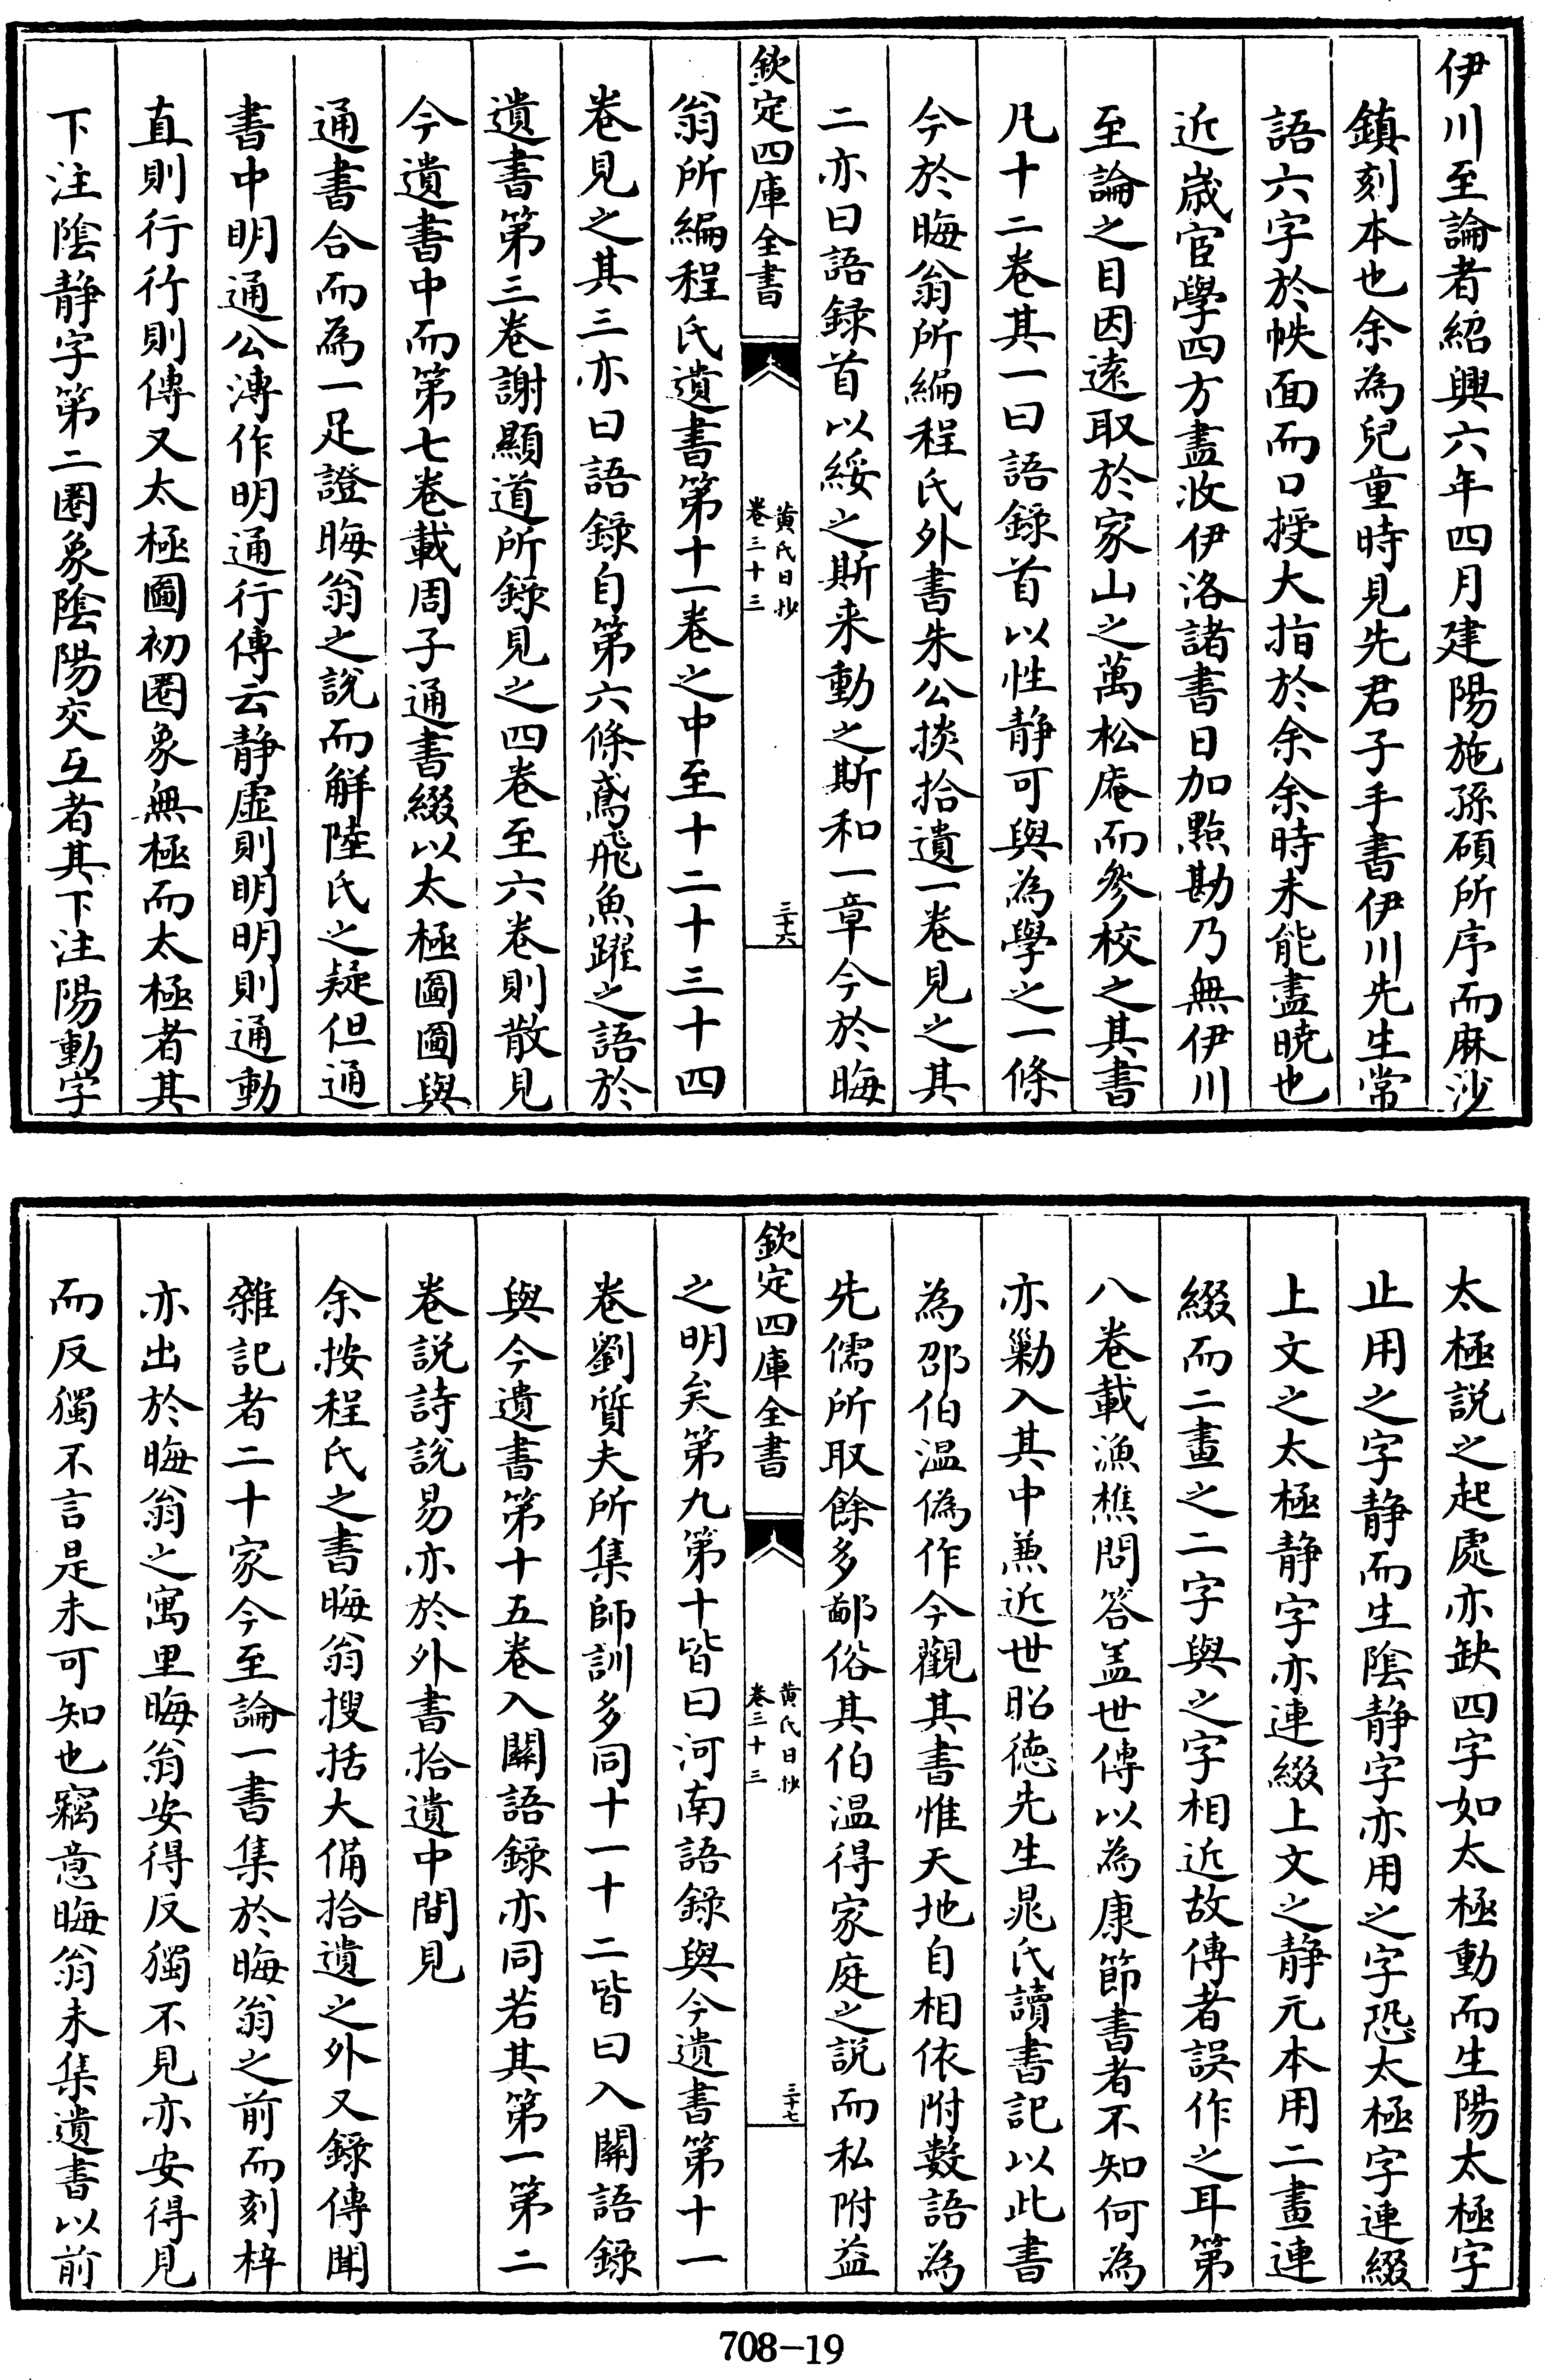 伊川至論者紹興六年四月建陽施孫碩所序而麻沙
鎮刻本也余為兒童時見先君子手書伊川先生常
語六字於帙面而口授大指於余余時未能盡曉也
近嵗宦學四方盡收伊洛諸書日加㸃勘乃無伊川
至論之目因逺取於家山之萬松庵而參校之其書
凡十二卷其一曰語録首以性静可與為學之一條
今於晦翁所編程氏外書朱公掞拾遺一卷見之其
二亦曰語録首以綏之斯来動之斯和一章今於晦
欽定四庫全書
黄氏日抄
卷三十三
三十六
翁所編程氏遺書第十一卷之中至十二十三十四
卷見之其三亦曰語録自第六條鳶飛魚躍之語於
遺書第三卷謝顯道所錄見之四卷至六卷則散見
今遺書中而第七卷載周子通書綴以太極圖圖與
通書合而為一足證晦翁之說而解陸氏之疑但通
書中明通公溥作明通行傳云静虚則明明則通動
直則行行則傳又太極圖初圏象無極而太極者其
下注隂静字第二圏象隂陽交互者其下注陽動字
太極說之起處亦缺四字如太極動而生陽太極字
止用之字静而生隂静字亦用之字恐太極字連綴
上文之太極静字亦連綴上文之静元本用二畫連
綴而二畫之二字與之字相近故傳者誤作之耳第
八卷載漁樵問答盖世傳以為康節書者不知何為
亦勦入其中兼近世昭徳先生晁氏讀書記以此書
為邵伯温偽作今觀其書惟天地自相依附數語為
先儒所取餘多鄙俗其伯温得家庭之說而私附益
欽定四庫全書
黄氏日抄
卷三十三
三十七
之明矣第九第十皆曰河南語錄與今遺書第十一
卷劉質夫所集師訓多同十一十二皆曰入闗語錄
與今遺書第十五卷入闗語錄亦同若其第一第二
卷說詩說易亦於外書拾遺中間見
余按程氏之書晦翁搜括大備拾遺之外又錄傳聞
雜記者二十家今至論一書集於晦翁之前而刻梓
亦出於晦翁之寓里晦翁安得反獨不見亦安得見
而反獨不言是未可知也竊意晦翁未集遺書以前
708-19